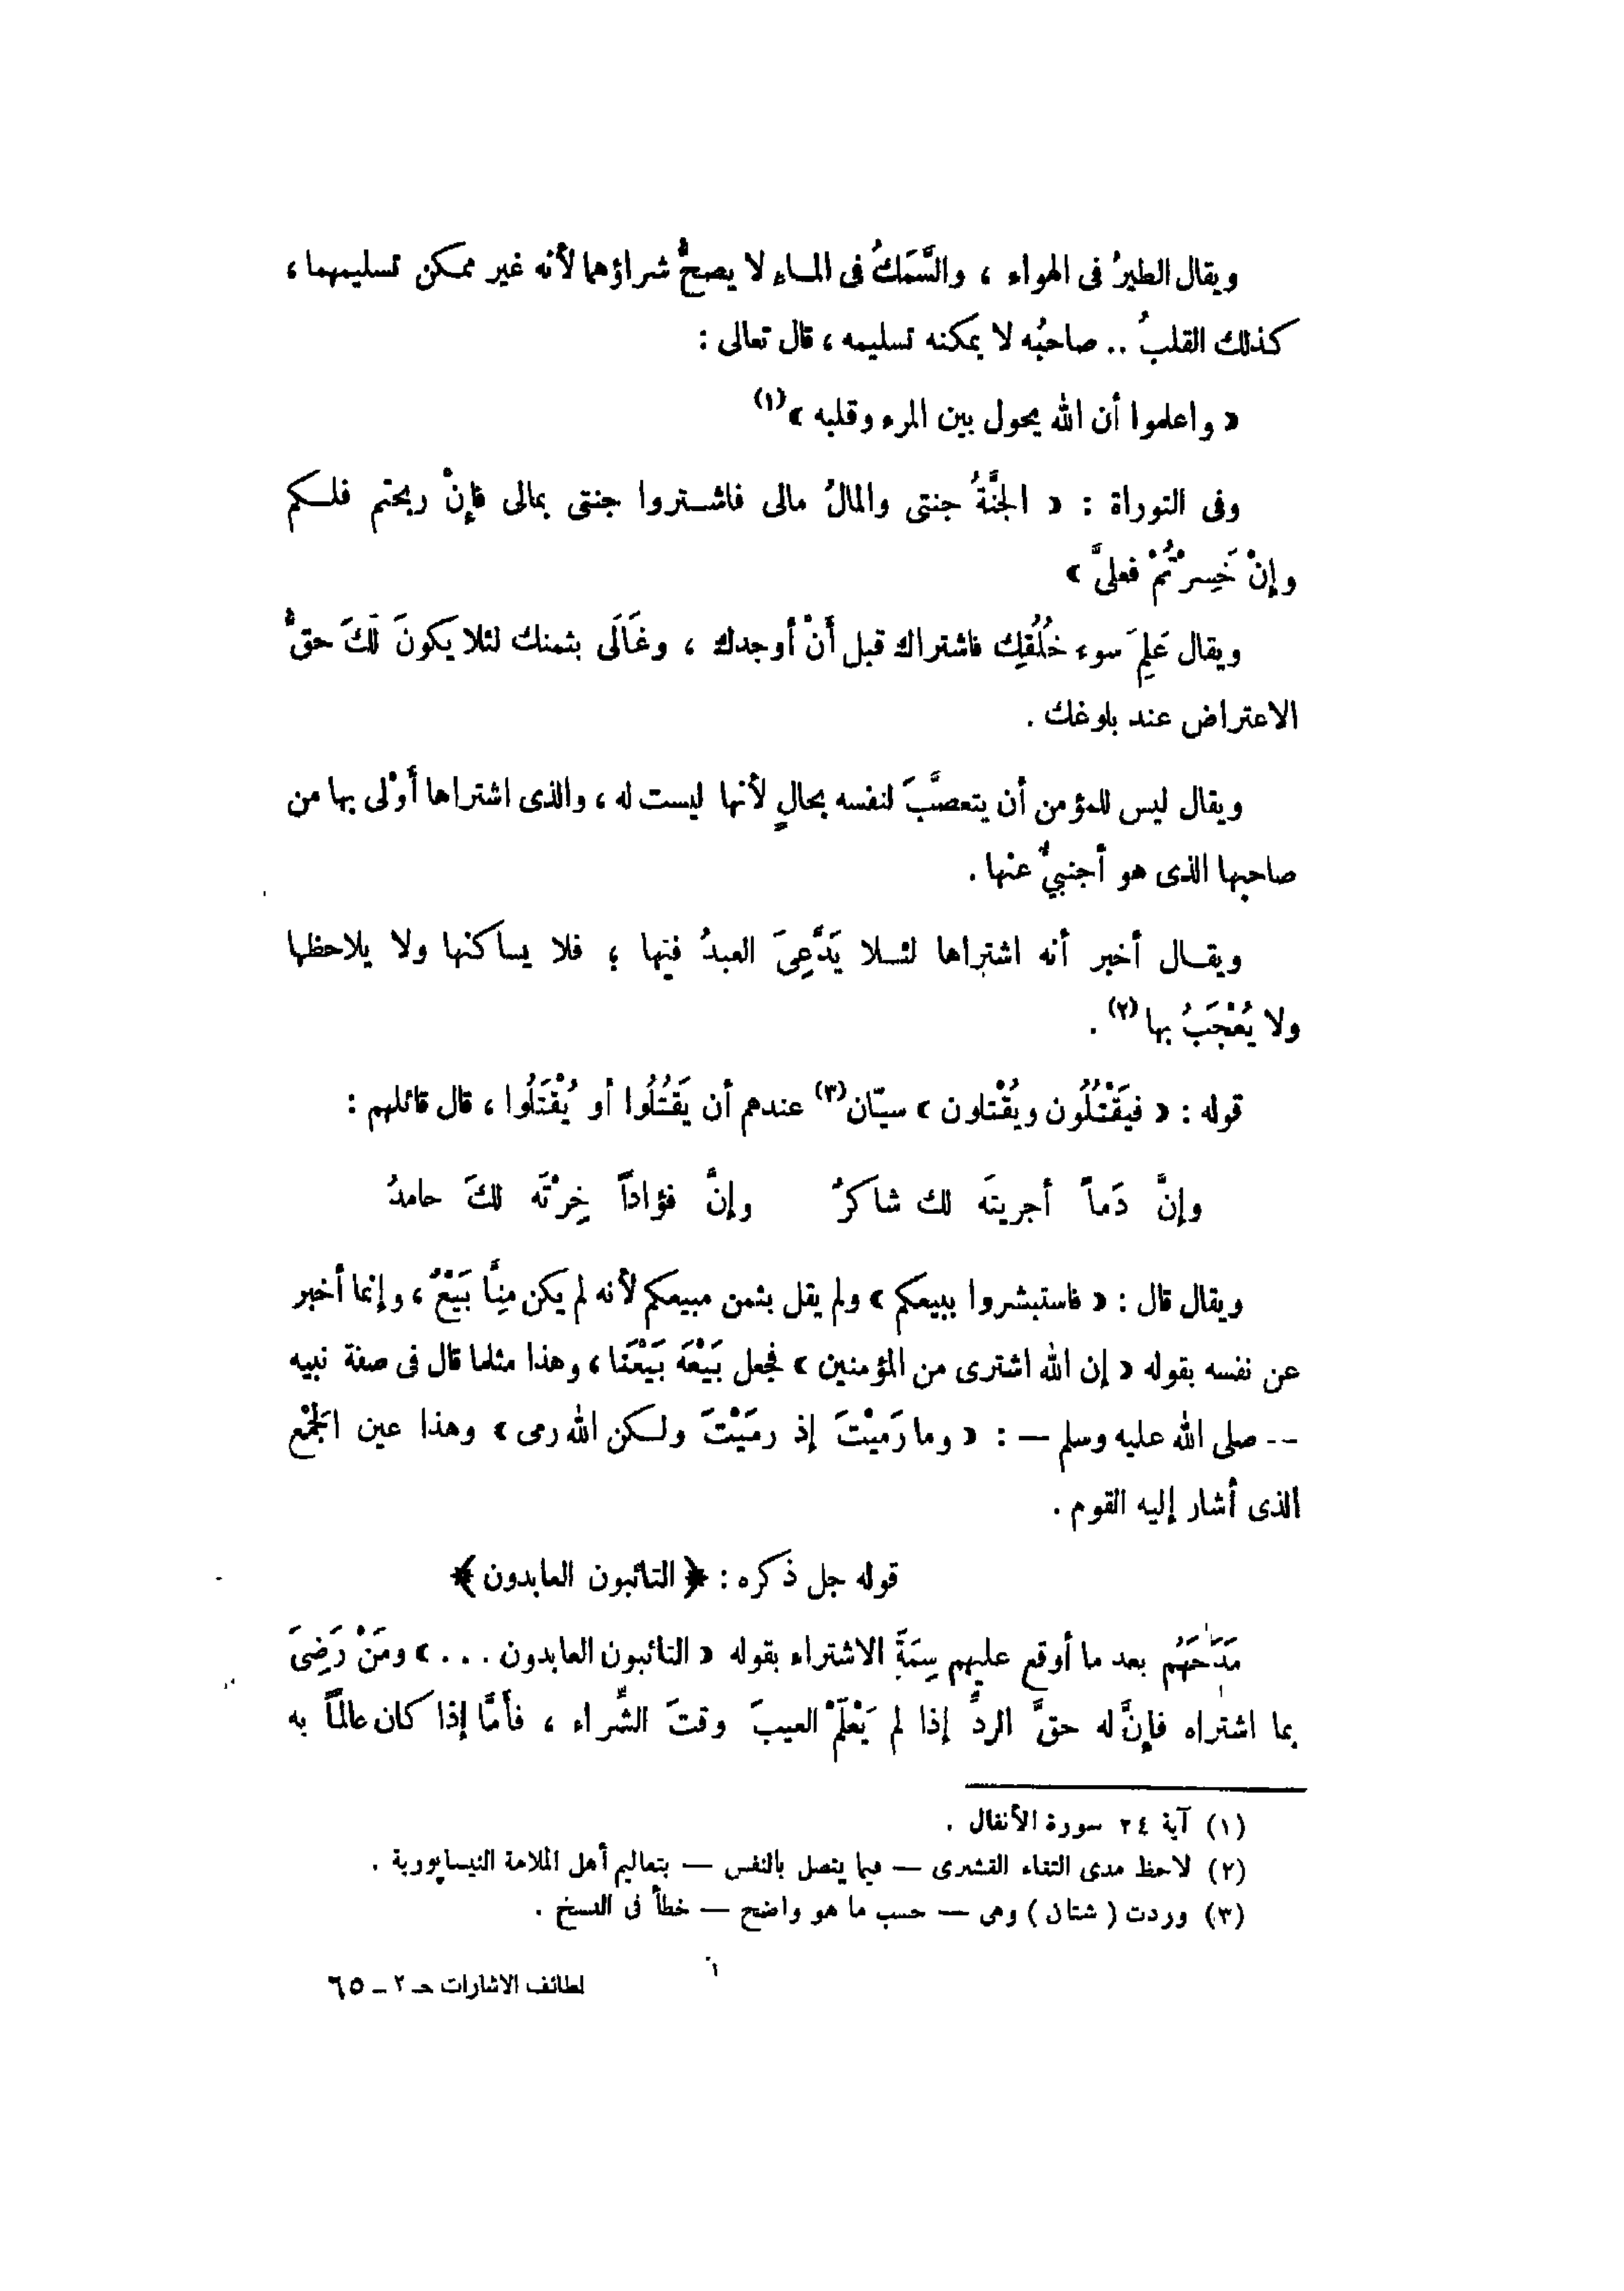 ويقال الطيرُ فى الهواء ، والسَّمَكُ فى المـاء لا يصحُّ شراؤهما لأنه غير ممكن تسليمهما ،
كذلك القلبُ .. صاحبُه لا يمكنه تسليمه ، قال تعالى :
« واعلموا أن الله يحول بين المرء وقلبه »(١)
وفى التوراة : « الجنَّةُ جنتى والمالُ مالى فاشـتروا جنتى بمالى فإنْ ربحتم فلـكم
وإنْ خَسِرْتُمْ فعلىَّ »
ويقال عَلِمَ سوء خُلُقِك فاشتراك قبل أَنْ أوجدك ، وغَالَى بثمنك لئلا يكونَ لَكَ حقُّ
الاعتراض عند بلوغك .
ويقال ليس للمؤمن أن يتعصَّبَ لنفسه بحالٍ لأنها ليست له ، والذى اشتراها أَوْلى بها من
صاحبها الذى هو أجنبيٌّ عنها .
ويقـال أخبر أنه اشتراها لئـلا يَدَّعِىَ العبدُ فيها ؛ فلا يساكنها ولا يلاحظها
ولا يُعْجَبُ بها (٢) .
قوله : « فيَقْتُلُون ويقْتلون » سيّان(٣) عندهم أن يَقتُلُوا أو يُقْتَلُوا ، قال قائلهم :
وإنَّ دَماً أجريتَه لك شاكرٌ وإنَّ فؤاداً خِرْتَه لكَ حامدُ
ويقال قال : « فاستبشروا ببيعكم » ولم يقل بثمن مبيعكم لأنه لم يكن مِنَّا بَيْعٌ ، وإنما أخبر
عن نفسه بقوله « إن الله اشترى من المؤمنين » فجعل بَيْعَه بَيْعَنا ، وهذا مثلما قال فى صفة نبيه
-- صلى الله عليه وسلم — : « وما رَميْتَ إذ رمَيْتَ ولـكن الله رمى » وهذا عين الجَمْع
الذى أشار إليه القوم .
قوله جل ذكره : ﴿ التائبون العابدون ﴾
مَدَحَهُم بعد ما أوقع عليهم سِمَةَ الاشتراء بقوله « التائبون العابدون . . . » ومَنْ رَضِىَ
بما اشتراه فإنَّ له حقَّ الردِّ إذا لم يَعْلَمْ العيبَ وقتَ الشِّراء ، فأمَّا إذا كان عالماً به
(١) آية ٢٤ سورة الأنفال .
(٢) لاحظ مدى التقاء القشيرى — فيما يتصل بالنفس — بتعاليم أهل الملامة النيسابورية .
(٣) وردت ( شتان ) وهى — حسب ما هو واضح — خطأ فى النسخ .
لطائف الاشارات حـ ٢ ـ ٦٥